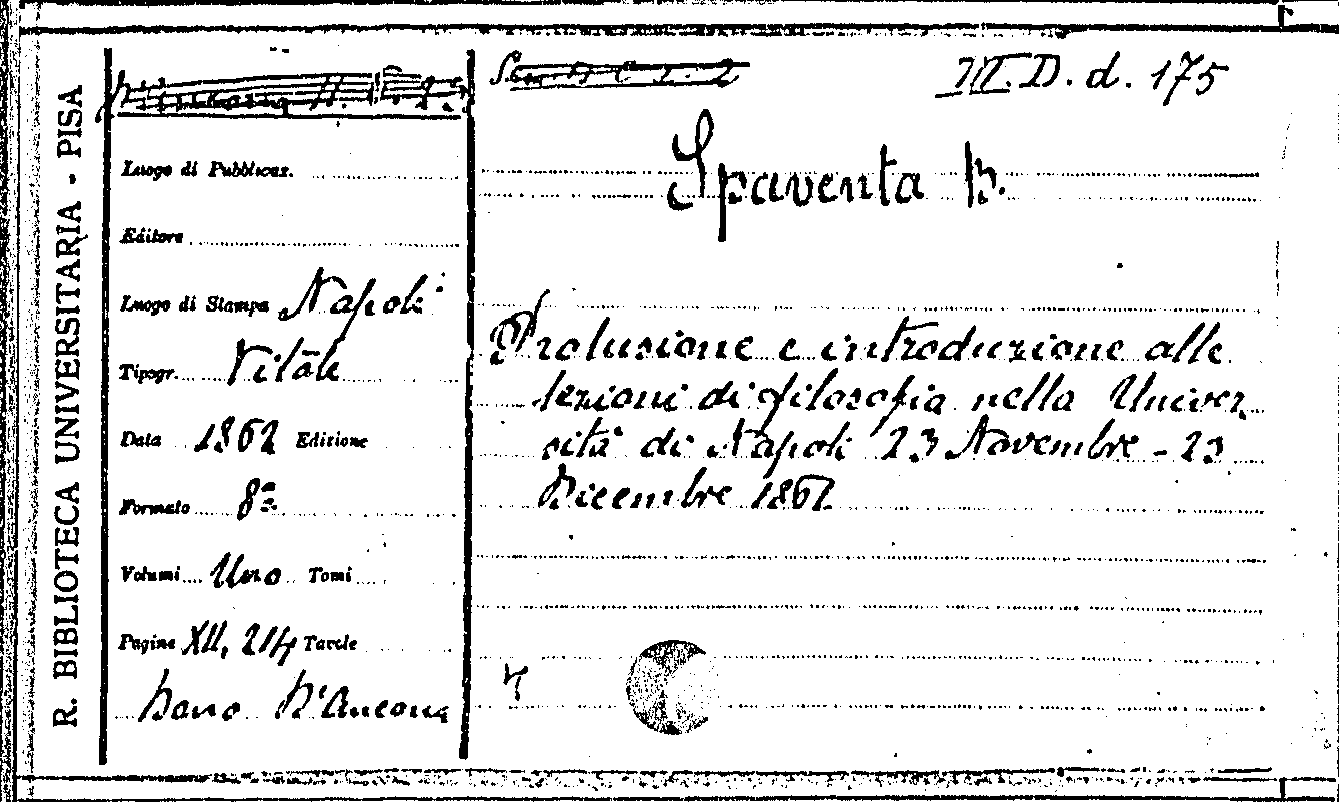 R. BIBLIOTECA UNIVERSITARIA - PISA
III. D. d. 175
Spaventa B.
Luogo di Pubblicaz.
Editore
Luogo di Stampa Napoli
Tipogr. Vitale
Data 1862 Edizione
Formato 8º
Volumi Uno Tomi
Pagine XII, 214 Tavole
Dono D'Ancona
Prolusione e introduzione alle
lezioni di filosofia nella Univer
sità di Napoli 23 Novembre - 23
Dicembre 1861